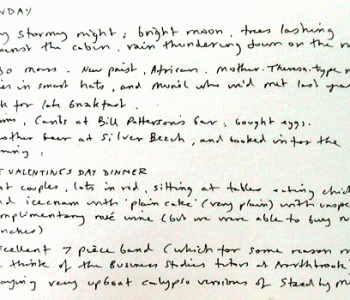 NDAY
y stormy night, bright moon, trees lashing
ainst the cabin, rain thundering down on the r
30 mass. New priest, African, Mother Theresa-type n
ies in smart hats, and Muriel who we'd met last year
ch for late breakfast.
ms, Carib at Bill Patterson's bar, bought eggs.
nother beer at Silver Beach, and booked in for the
ning,
T VALENTINE'S DAY DINNER
at couples, lots in red, sitting at tables eating chick
nd icecream with 'plain cake' (very plain) with unspe
mplimentary rosé wine (but we were able to buy n
unches)
xcellent 7 piece band (which for some reason m
think of the Business Studies tutors at Northbrook
aying very upbeat calypso versions of Stand by M